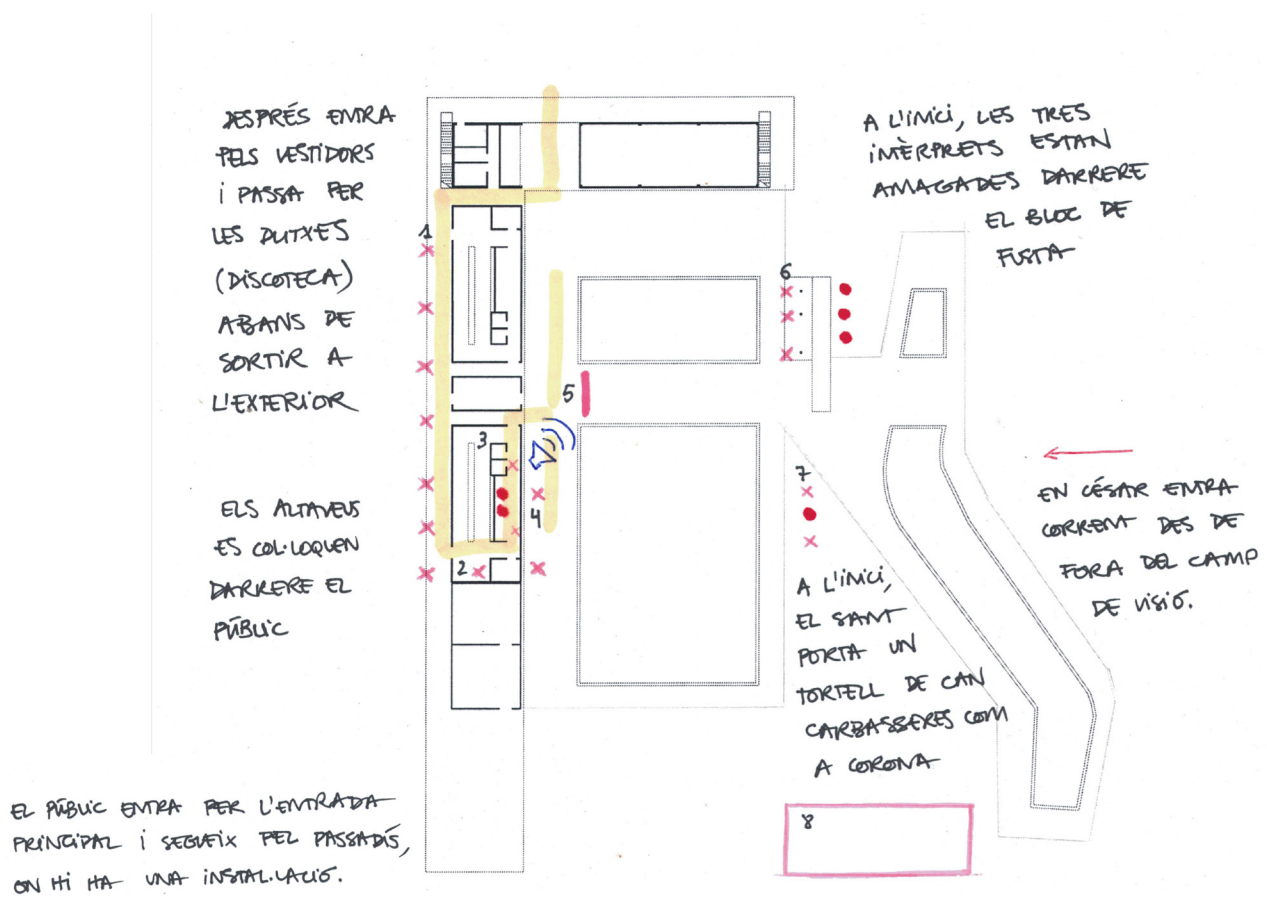 DESPRÉS ENTRA
PELS VESTIDORS
I PASSA PER
LES DUTXES
(DISCOTECA)
ABANS DE
SORTIR A
L'EXTERIOR
ELS ALTAVEUS
ES COL·LOQUEN
DARRERE EL
PÚBLIC
EL PÚBLIC ENTRA PER L'ENTRADA
PRINCIPAL I SEGUEIX PEL PASSADÍS,
ON HI HA UNA INSTAL·LACIÓ.
1
2
3
4
5
6
7
8
A L'INICI, LES TRES
INTÈRPRETS ESTAN
AMAGADES DARRERE
EL BLOC DE
FUSTA
EN CÉSAR ENTRA
CORRENT DES DE
FORA DEL CAMP
DE VISIÓ.
A L'INICI,
EL SANT
PORTA UN
TORTELL DE CAN
CARBASSERES COM
A CORONA